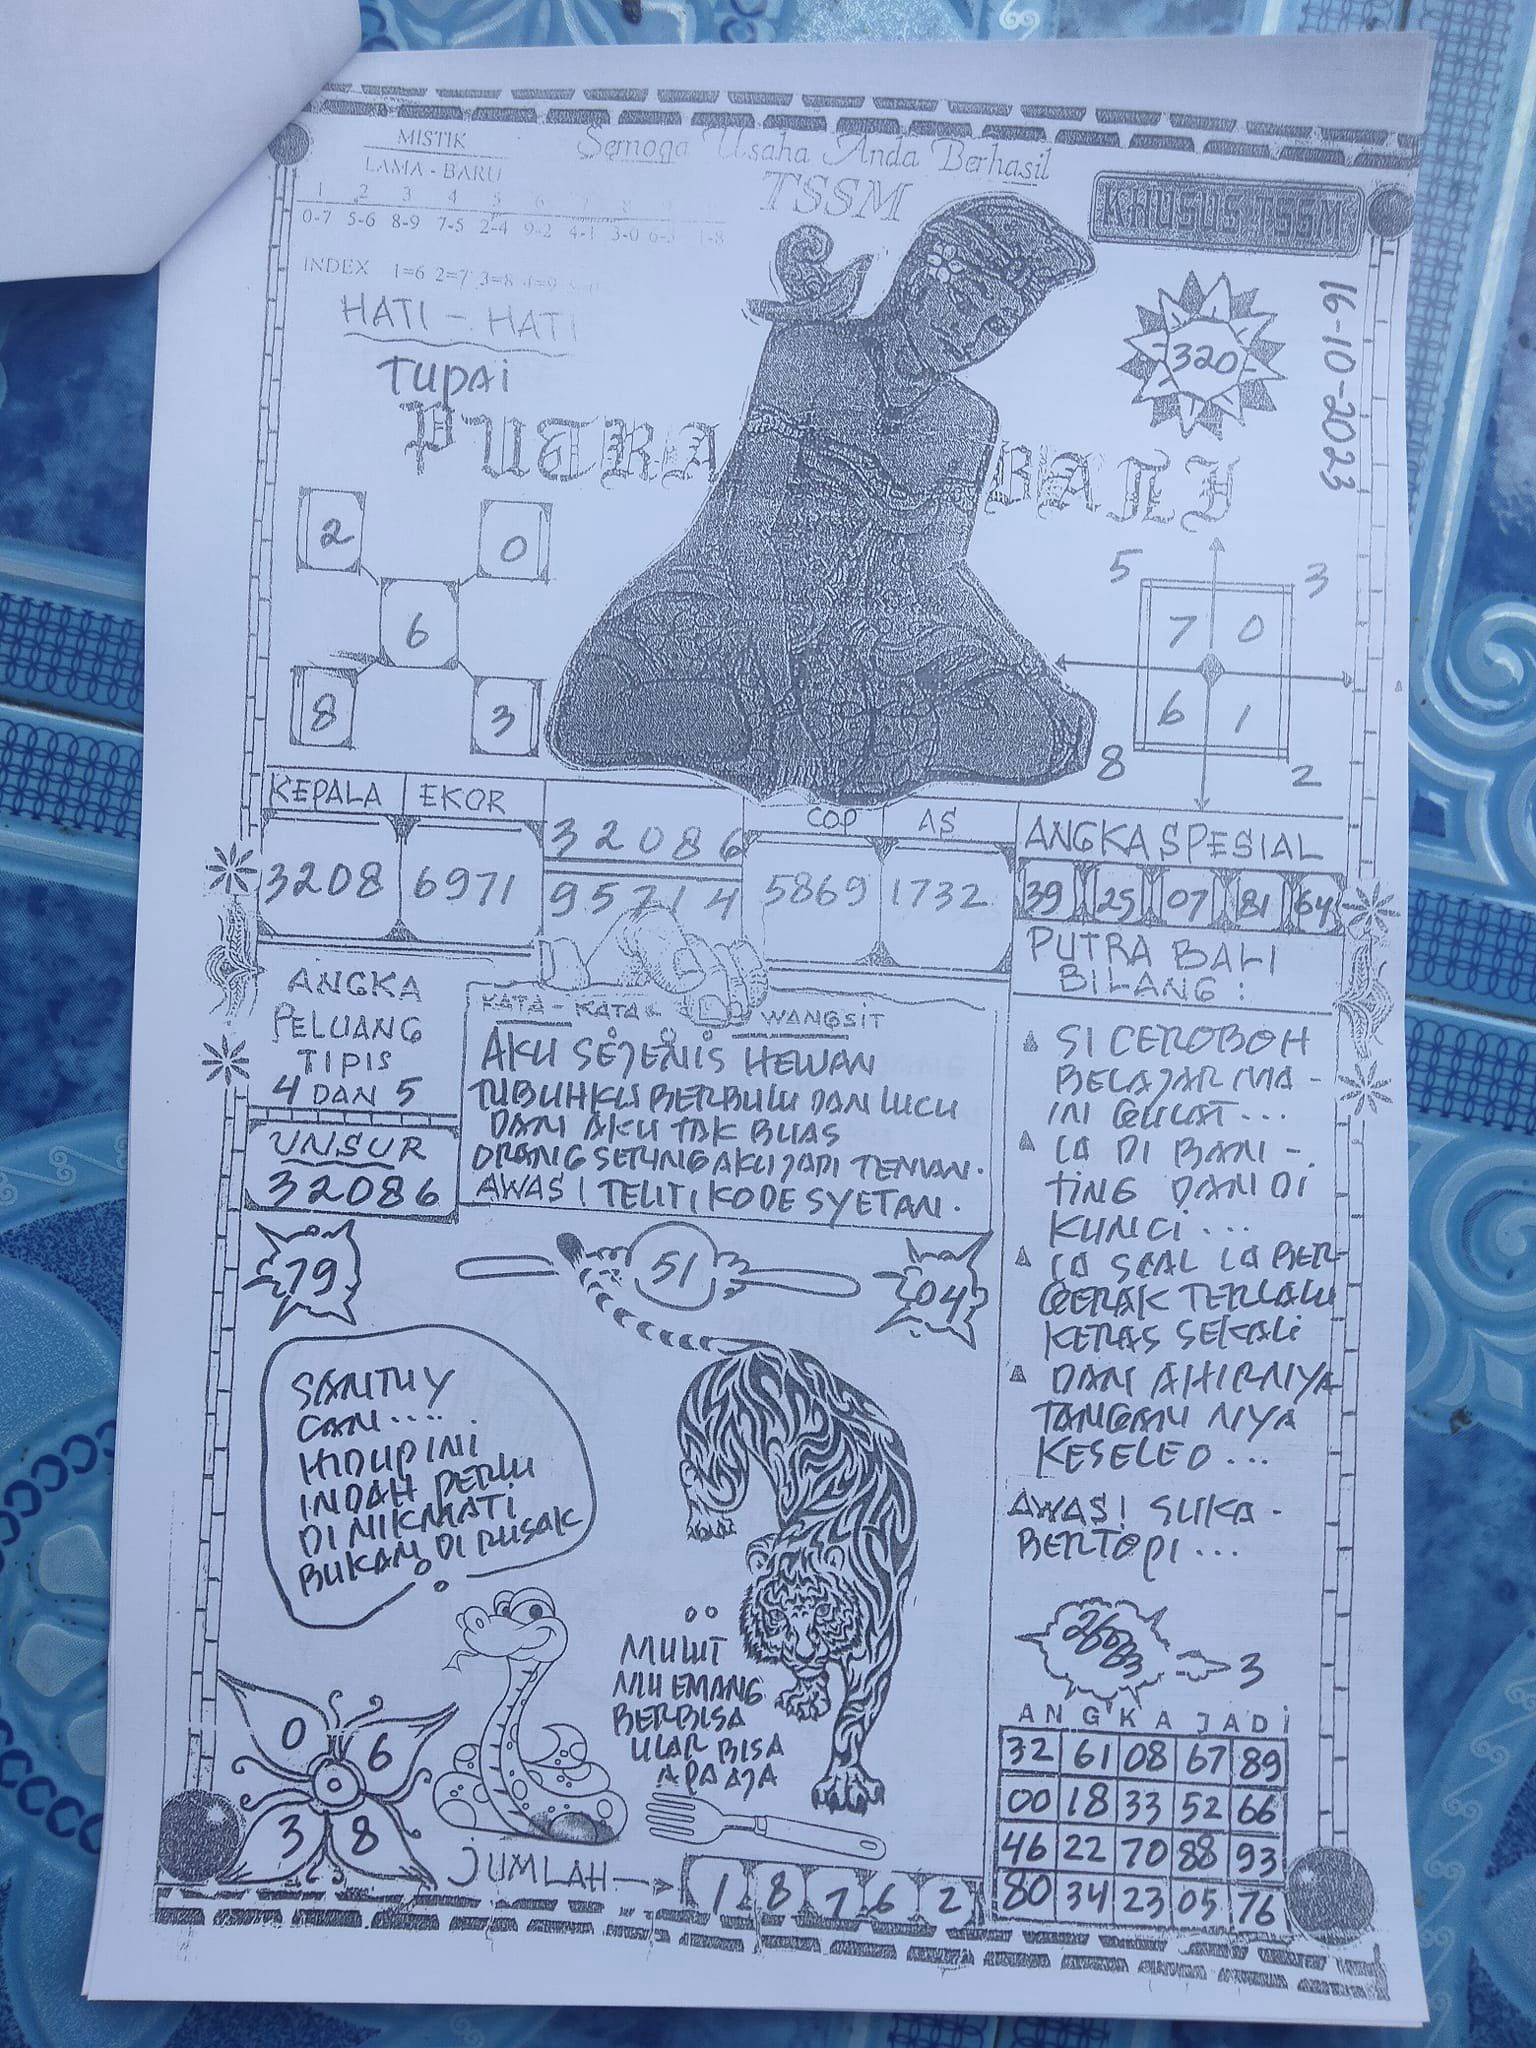 MISTIK
LAMA - BARU
Semoga Usaha Anda Berhasil
TSSM
KHUSUS TSSM
1 2 3 4 5 6 7 8
0-7 5-6 8-9 7-5 2-4 9-2 4-1 3-0 6-3 1-8
INDEX 1=6 2=7 3=8 4=9
16-10-2023
HATI - HATI
TUPAI
320
PUTRA BALI
2 0
6
8 3
5 3
7 0
6 1
8 2
KEPALA EKOR
3208 6971
32086
95714
COP AS
5869 1732
ANGKA SPESIAL
39 25 07 81 64
ANGKA
PELUANG
TIPIS
4 DAN 5
UNSUR
32086
KATA - KATA WANGSIT
AKU SEJENIS HEWAN
TUBUHKU BERBULU DAN LUCU
DAN AKU TAK BUAS
ORANG SERING AKU JADI TEMAN.
AWAS! TELITI KODE SYETAN.
PUTRA BALI
BILANG :
SI CEROBOH
BELAJAR MA -
IN GULAT...
LO DI BAN -
TING DAN DI
KUNCI...
LO SOAL LO BER
GERAK TERLALU
KERAS SEKALI
DAN AHIRNYA
TANGAN NYA
KESELEO...
AWAS! SUKA -
BERTOPI...
79
51
04
SANTUY
CAN....
HIDUP INI
INDAH PERLU
DI NIKMATI
BUKAN DI RUSAK
MULUT
MU EMANG
BERBISA
ULAR BISA
APA AJA
0 6
3 8
JUMLAH
1 8 7 6 2
3
ANGKA JADI
32 61 08 67 89
00 18 33 52 66
46 22 70 88 93
80 34 23 05 76